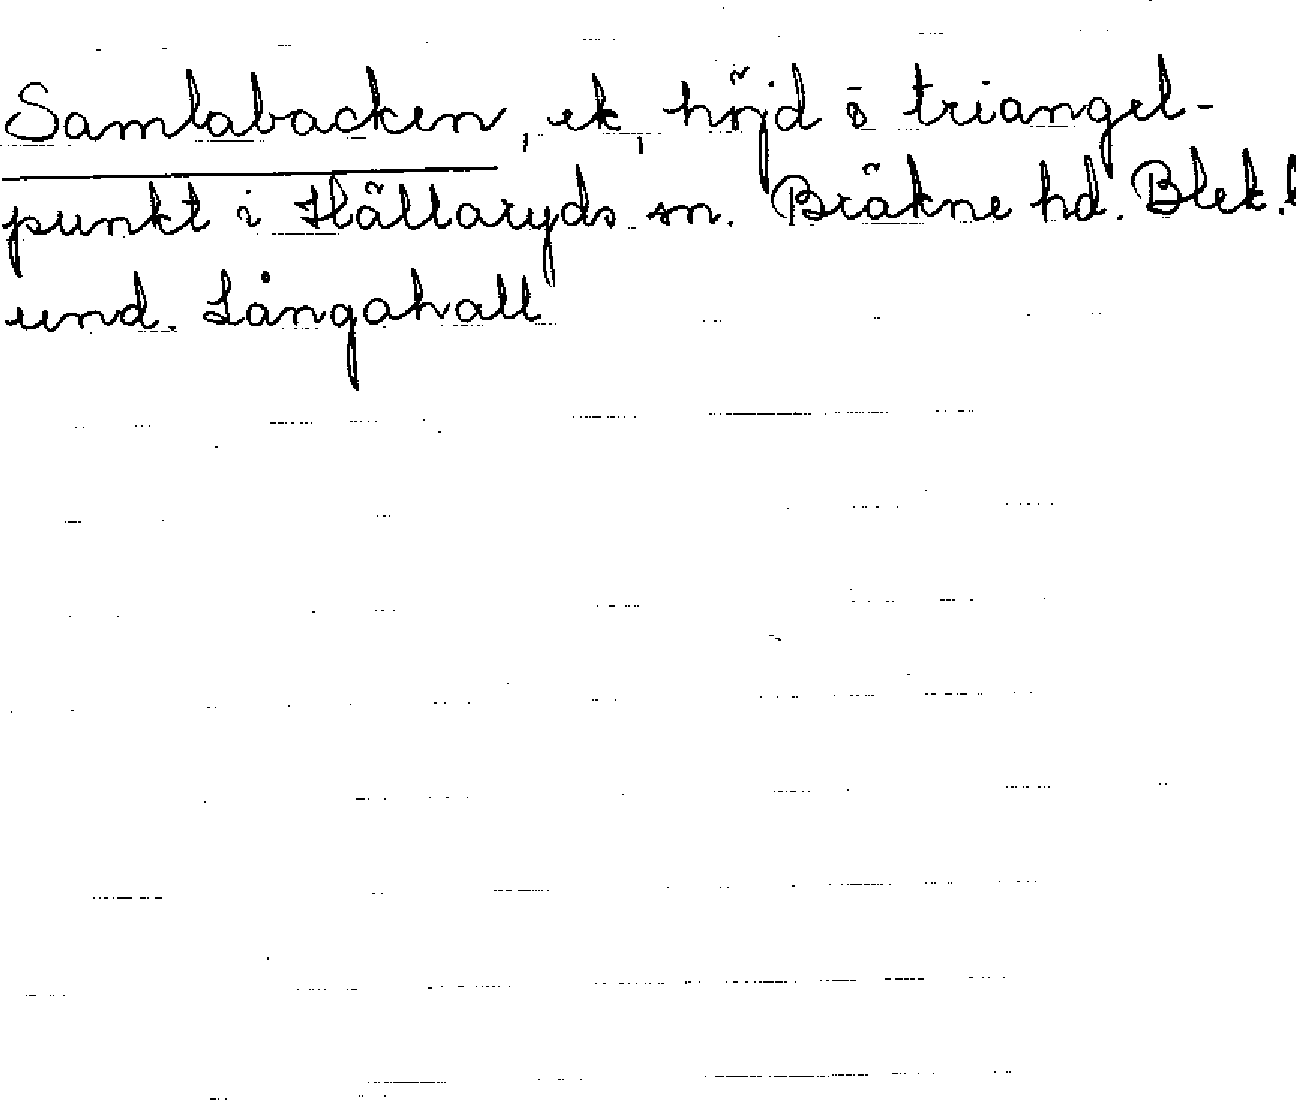 Samlabacken, ek, höjd o triangel-
punkt i Hällaryds sn. Bräkne hd. Blek.
und. Långahall